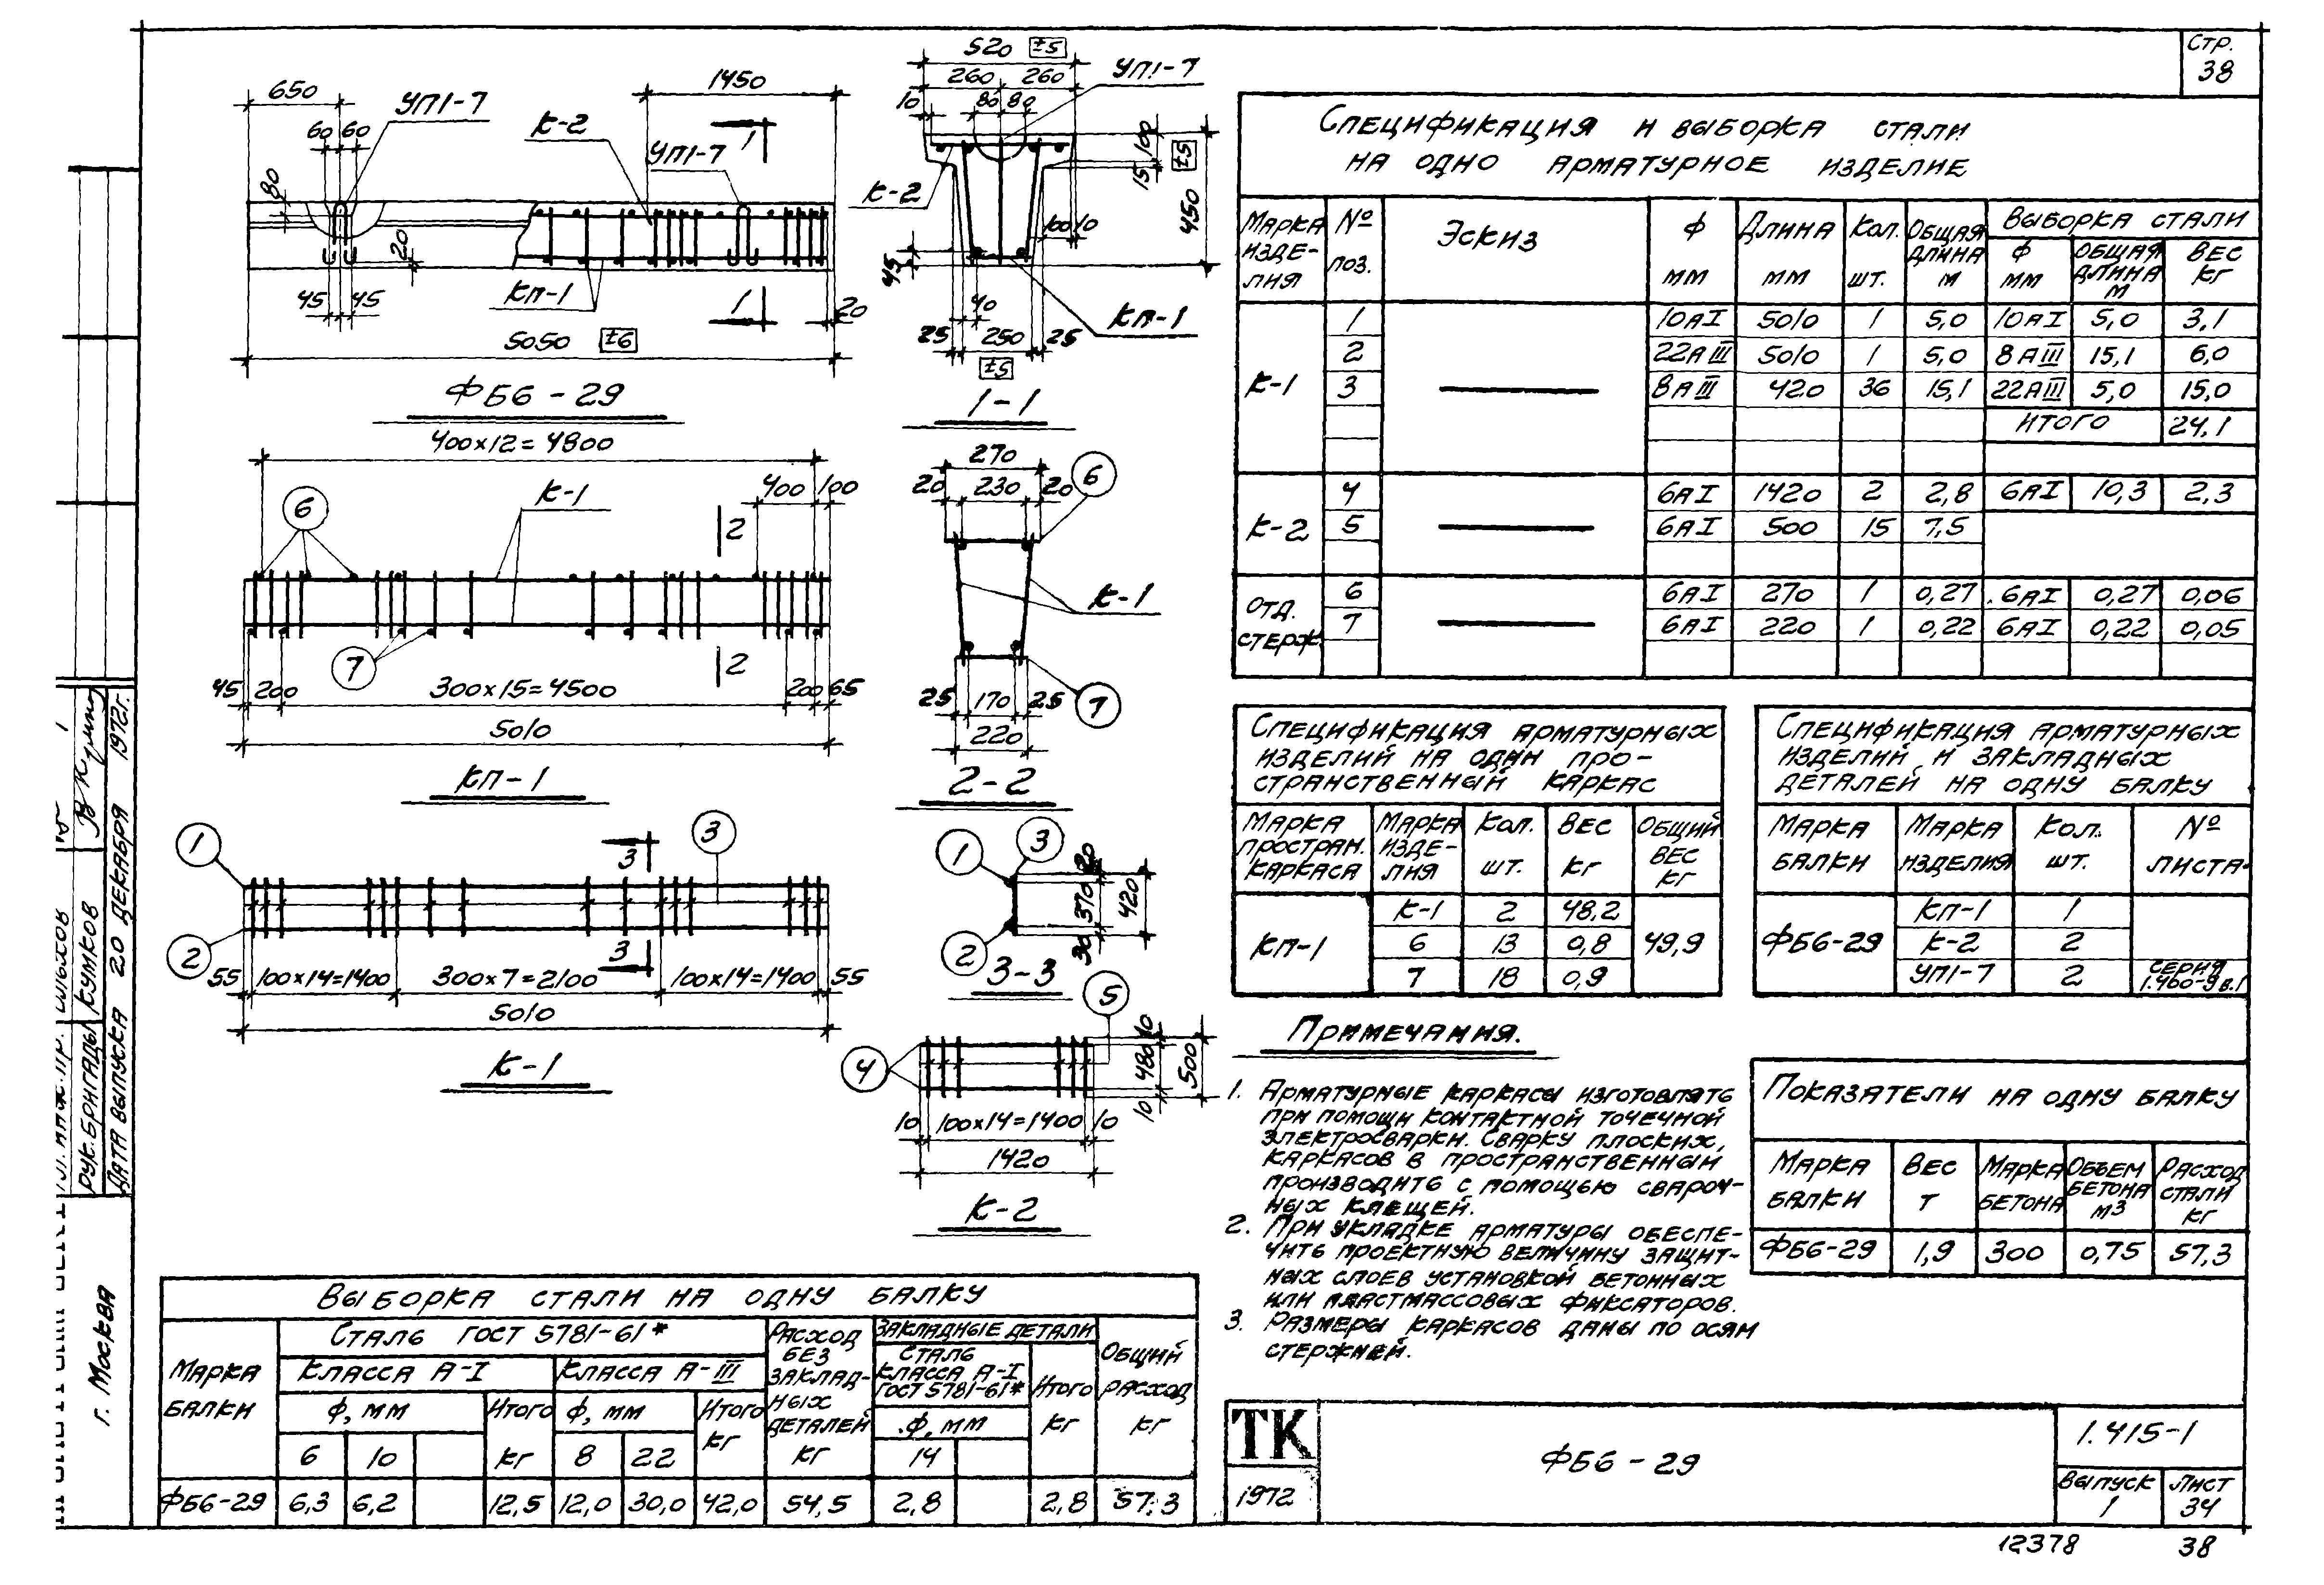 Стр.
38
650
УП1-7
К-2
УП1-7
1450
60 60
80
20
1
45 45
КП-1
1
20
5050 ±6
ФБ6-29
520 ±5
260 260
УП1-7
10
80 80
К-2
15 100
±5
450
100 10
45
40
КП-1
25 250 25
±5
1-1
400х12=4800
6
К-1
400 100
2
7
2
45 200 300х15=4500 200 65
5010
КП-1
270
20 230 20
6
К-1
25 170 25
7
220
2-2
1
3
3
2
3
55 100х14=1400 300х7=2100 100х14=1400 55
5010
К-1
1
3
20
370
420
2
30
3-3
5
4
10
480
500
10
10 100х14=1400 10
1420
К-2
Спецификация и выборка стали
на одно арматурное изделие
Марка изделия № поз. Эскиз ф мм Длина мм Кол. шт. Общая длина м Выборка стали
ф мм Общая длина м Вес кг
К-1
1 10АI 5010 1 5,0 10АI 5,0 3,1
2 22АIII 5010 1 5,0 8АIII 15,1 6,0
3 8АIII 420 36 15,1 22АIII 5,0 15,0
Итого 24,1
К-2
4 6АI 1420 2 2,8 6АI 10,3 2,3
5 6АI 500 15 7,5
Отд. стерж.
6 6АI 270 1 0,27 6АI 0,27 0,06
7 6АI 220 1 0,22 6АI 0,22 0,05
Спецификация арматурных
изделий на один про-
странственный каркас
Марка простран. каркаса Марка изделия Кол. шт. Вес кг Общий вес кг
КП-1
К-1 2 48,2
6 13 0,8 49,9
7 18 0,9
Спецификация арматурных
изделий и закладных
деталей на одну балку
Марка балки Марка изделия Кол. шт. № листа
КП-1 1
ФБ6-29 К-2 2
УП1-7 2 серия 1.460-9 в.1
Примечания.
1. Арматурные каркасы изготовлять
при помощи контактной точечной
электросварки. Сварку плоских,
каркасов в пространственный
производить с помощью свароч-
ных клещей.
2. При укладке арматуры обеспе-
чить проектную величину защит-
ных слоев установкой бетонных
или пластмассовых фиксаторов.
3. Размеры каркасов даны по осям
стержней.
Показатели на одну балку
Марка балки Вес т Марка бетона Объем бетона м3 Расход стали кг
ФБ6-29 1,9 300 0,75 57,3
Выборка стали на одну балку
Марка балки Сталь ГОСТ 5781-61* Расход без закладных деталей кг Закладные детали Общий расход кг
Класса А-I Класса А-III Сталь класса А-I ГОСТ 5781-61* Итого кг
ф, мм Итого кг ф, мм Итого кг ф, мм
6 10 8 22 14
ФБ6-29 6,3 6,2 12,5 12,0 30,0 42,0 54,5 2,8 2,8 57,3
ТК
1972
ФБ6-29
1.415-1
Выпуск 1
Лист 34
12378 38
рук. бригады Кумков
Дата выпуска 20 декабря 1972г.
г. Москва